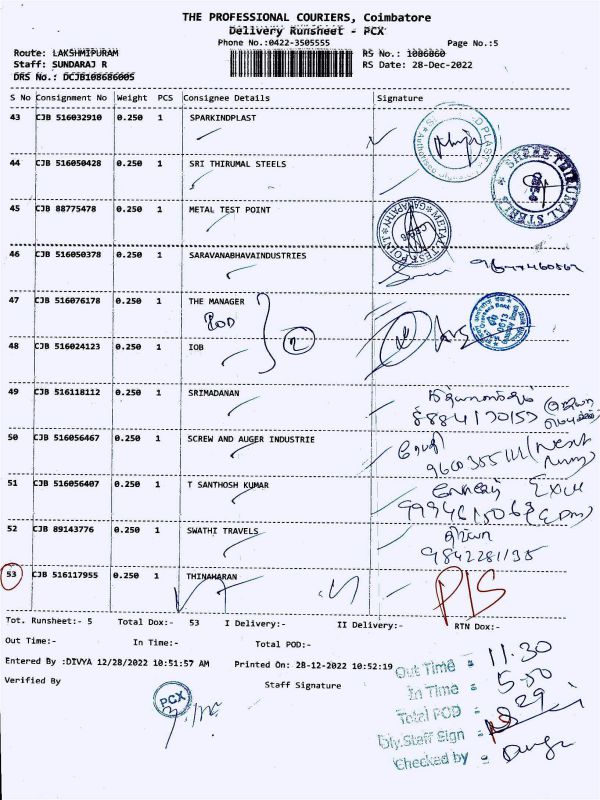 THE PROFESSIONAL COURIERS, Coimbatore
Delivery Runsheet - PCX
Phone No.:0422-3505555
Page No.:5
Route: LAKSHMIPURAM
RS No.: 1086860
Staff: SUNDARAJ R
RS Date: 28-Dec-2022
DRS No.: DCJB108686005
S No Consignment No Weight PCS Consignee Details Signature
43 CJB 516032910 0.250 1 SPARKINDPLAST
44 CJB 516050428 0.250 1 SRI THIRUMAL STEELS
SHREE THIRUMAL STEELS
45 CJB 88775478 0.250 1 METAL TEST POINT
METAL TEST POINT GANAPATHY
46 CJB 516050378 0.250 1 SARAVANABHAVAINDUSTRIES
47 CJB 516076178 0.250 1 THE MANAGER
POD
2
48 CJB 516024123 0.250 1 IOB
49 CJB 516118112 0.250 1 SRIMADANAN
50 CJB 516056467 0.250 1 SCREW AND AUGER INDUSTRIE
51 CJB 516056407 0.250 1 T SANTHOSH KUMAR
52 CJB 89143776 0.250 1 SWATHI TRAVELS
9842281135
53 CJB 516117955 0.250 1 THINAHARAN
P/S
Tot. Runsheet:- 5 Total Dox:- 53 I Delivery:- II Delivery:- RTN Dox:-
Out Time:- In Time:- Total POD:-
Entered By :DIVYA 12/28/2022 10:51:57 AM Printed On: 28-12-2022 10:52:19
Verified By Staff Signature
PCX
Out Time = 11.30
In Time = 5.00
Total POD = 29
Dly.Staff Sign =
Checked by =